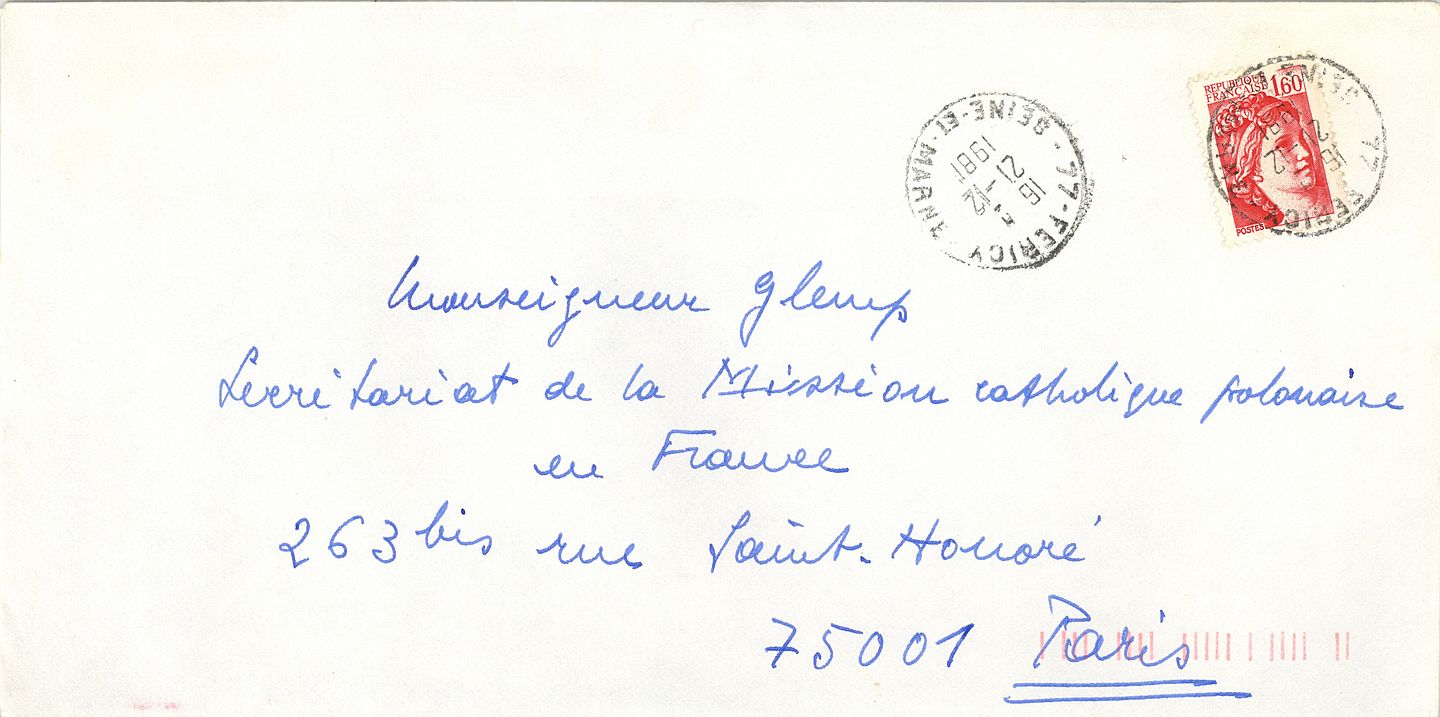 RÉPUBLIQUE
FRANÇAISE 1,60
POSTES
77-FERICY - SEINE-ET-MARNE
16
21-12
1981
77 FERICY
16
21-12
1981
Monseigneur Glemp
Secrétariat de la Mission catholique polonaise
en France
263 bis rue Saint-Honoré
75001 Paris